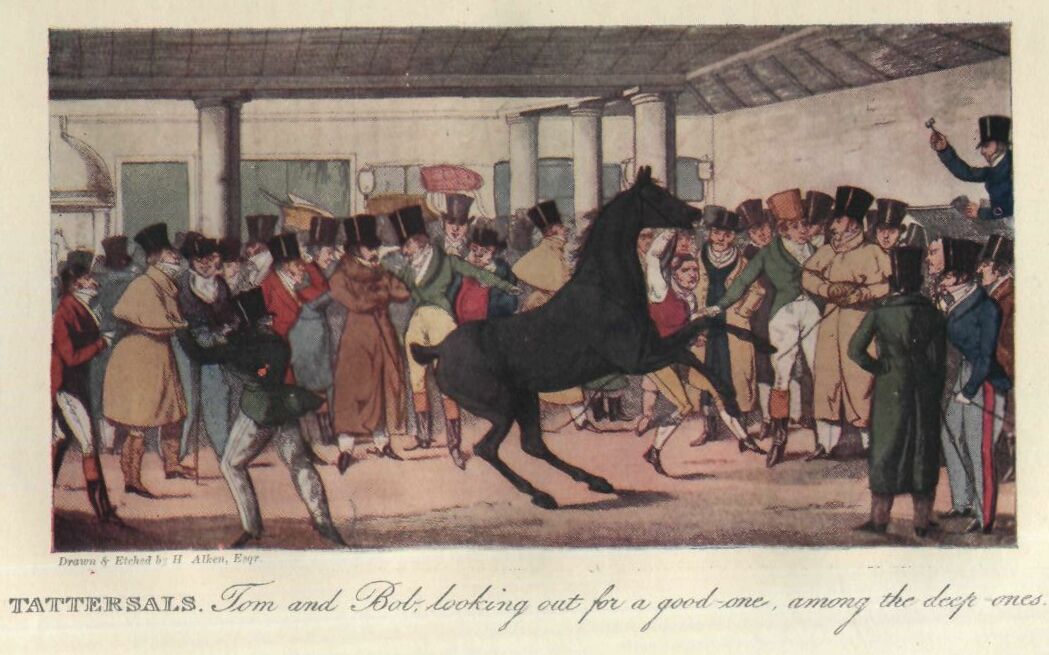 Drawn & Etched by H Alken, Esqr.
TATTERSALS. Tom and Bob, looking out for a good-one, among the deep-ones.